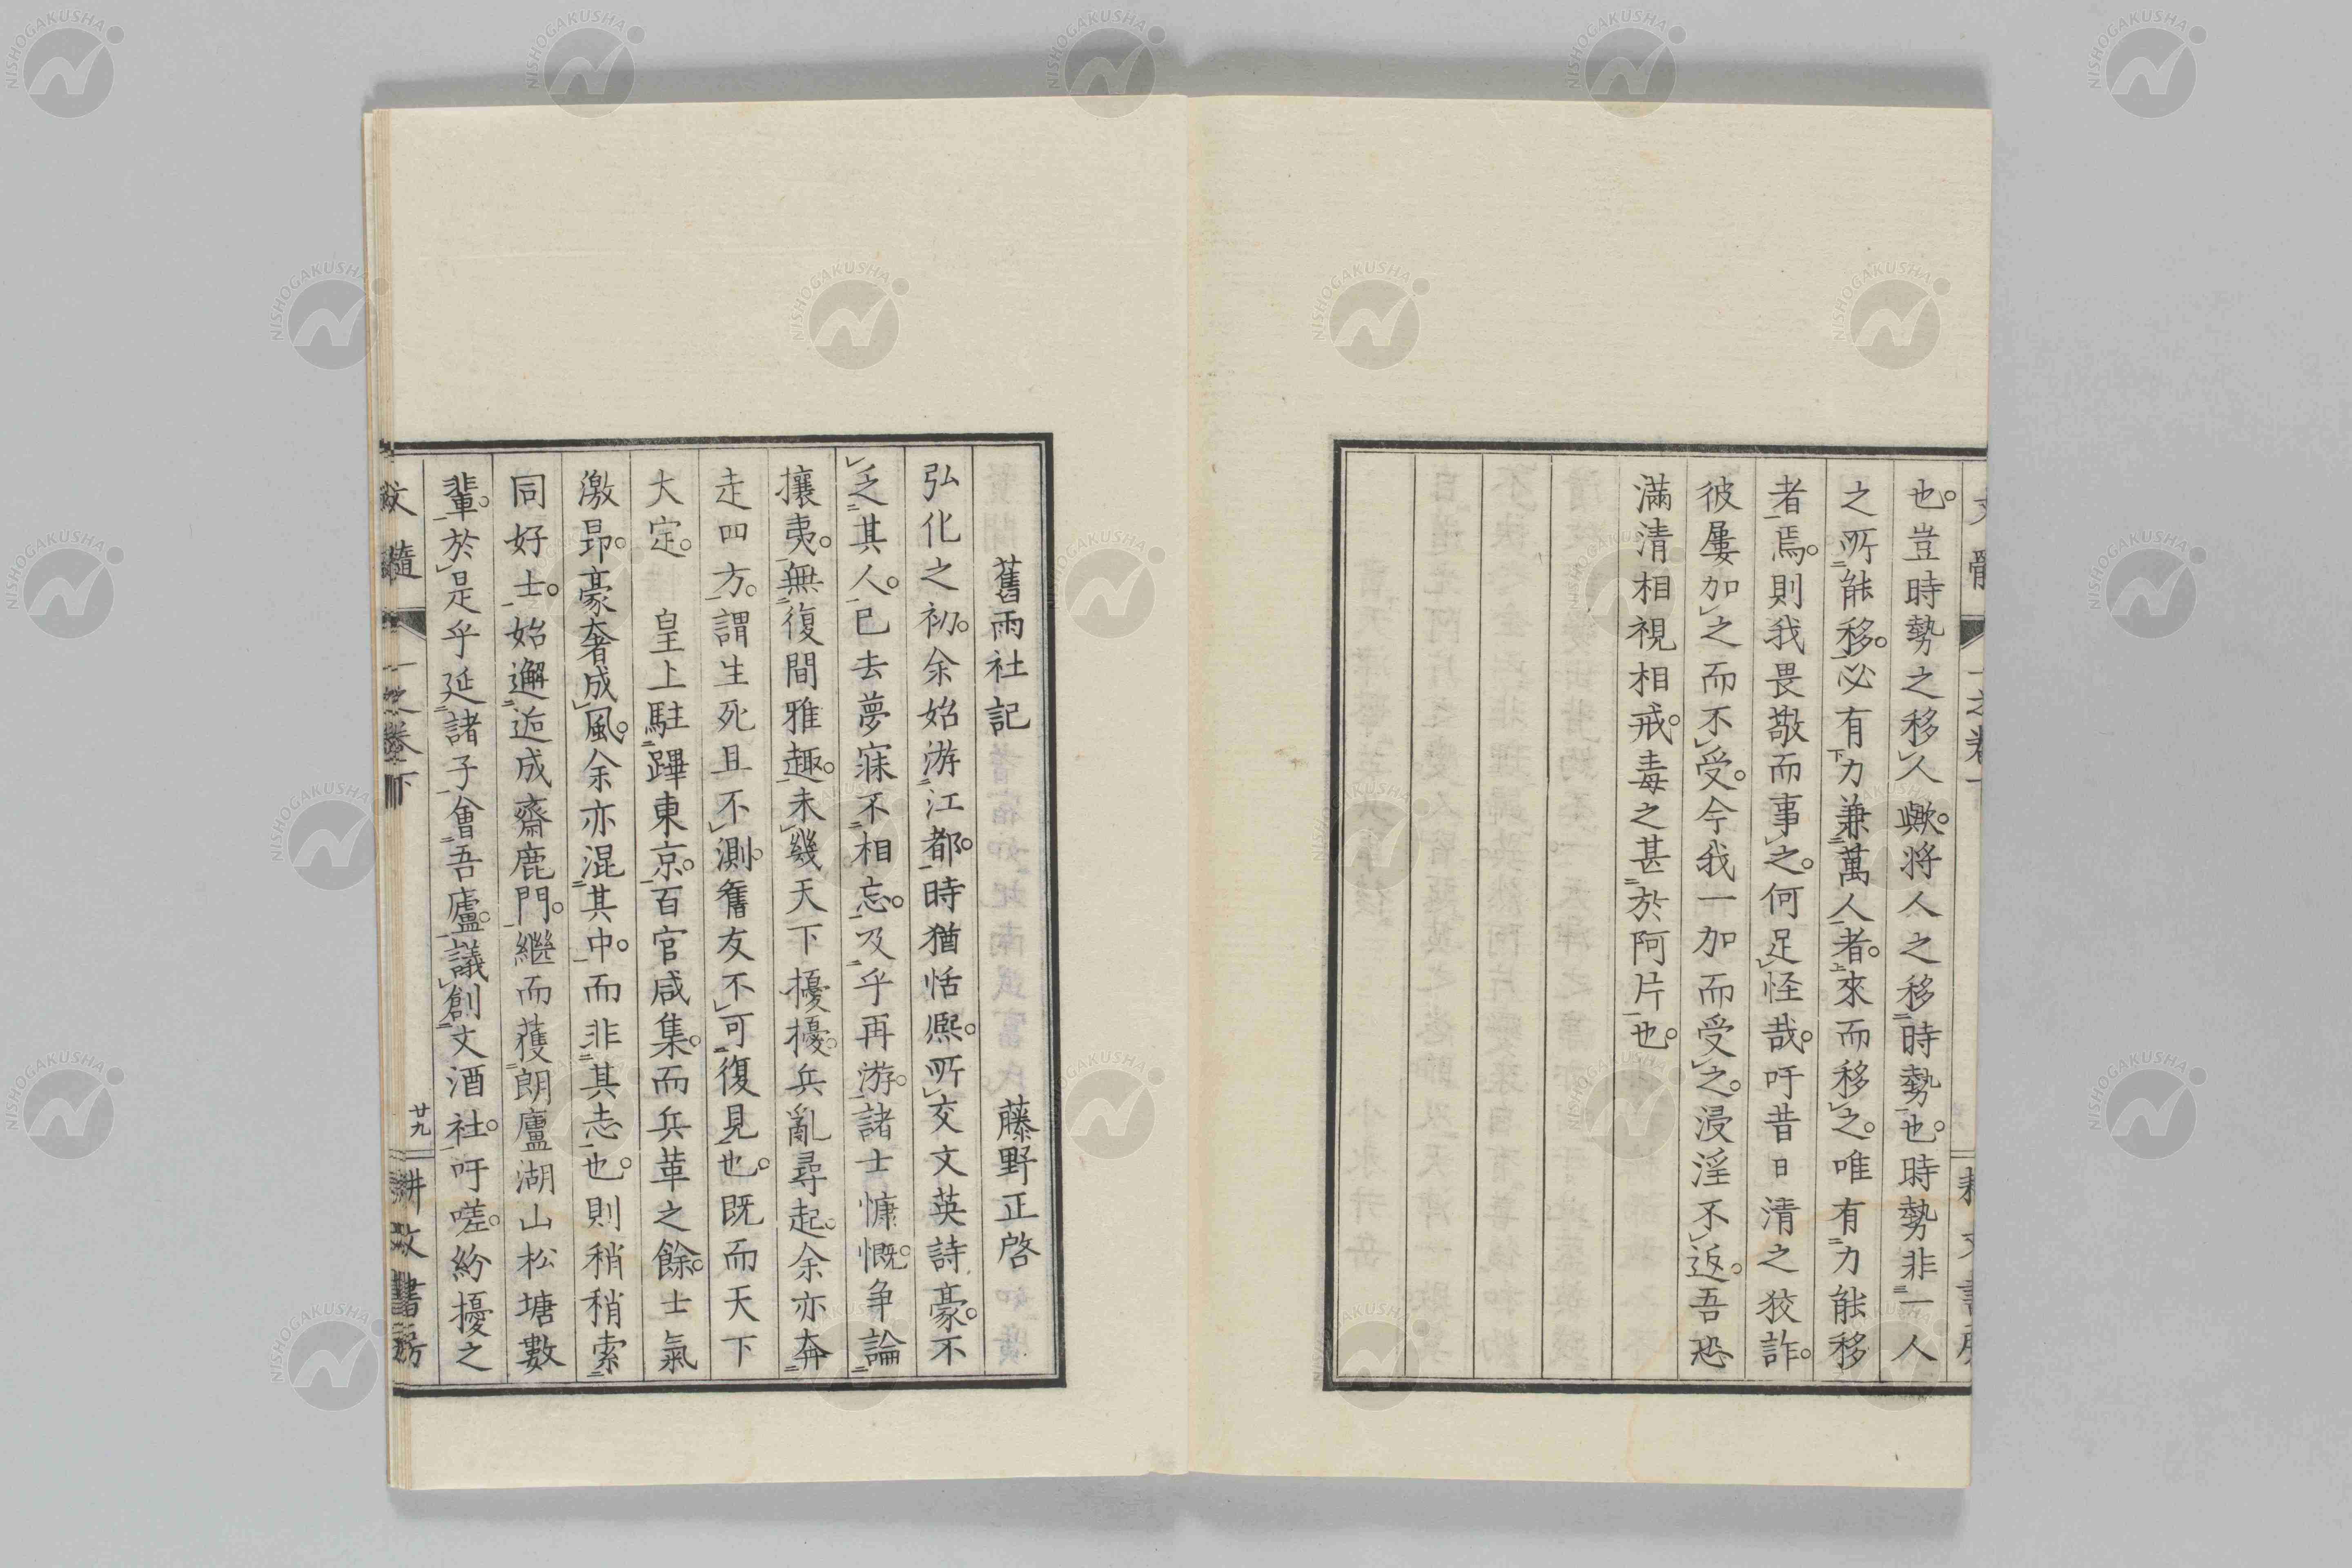 也。豈時勢之移人歟。將人之移時勢也。時勢非一人
之所能移。必有力兼萬人者。來而移之。唯有力能移
者焉。則我畏敬而事之。何足怪哉。吁昔日清之狡詐。
彼屢加之而不受。今我一加而受之。浸淫不返。吾恐
滿清相視相戒。毒之甚於阿片也。
舊雨社記 藤野正啓
弘化之初。余始游江都。時猶恬熈。所交文英詩豪。不
乏其人。已去夢寐不相忘。及乎再游。諸士慷慨。爭論
攘夷。無復間雅趣。未幾天下擾擾。兵亂尋起。余亦奔
走四方。謂生死且不測。舊友不可復見也。既而天下
大定。 皇上駐蹕東京。百官咸集。而兵革之餘。士氣
激昂。豪奢成風。余亦混其中。而非其志也。則稍稍索
同好士。始邂逅成齋鹿門。繼而獲朗廬湖山松塘數
輩。於是乎延諸子會吾廬。議創文酒社。吁嗟。紛擾之
文髓 一之卷下 廿九 耕文書房